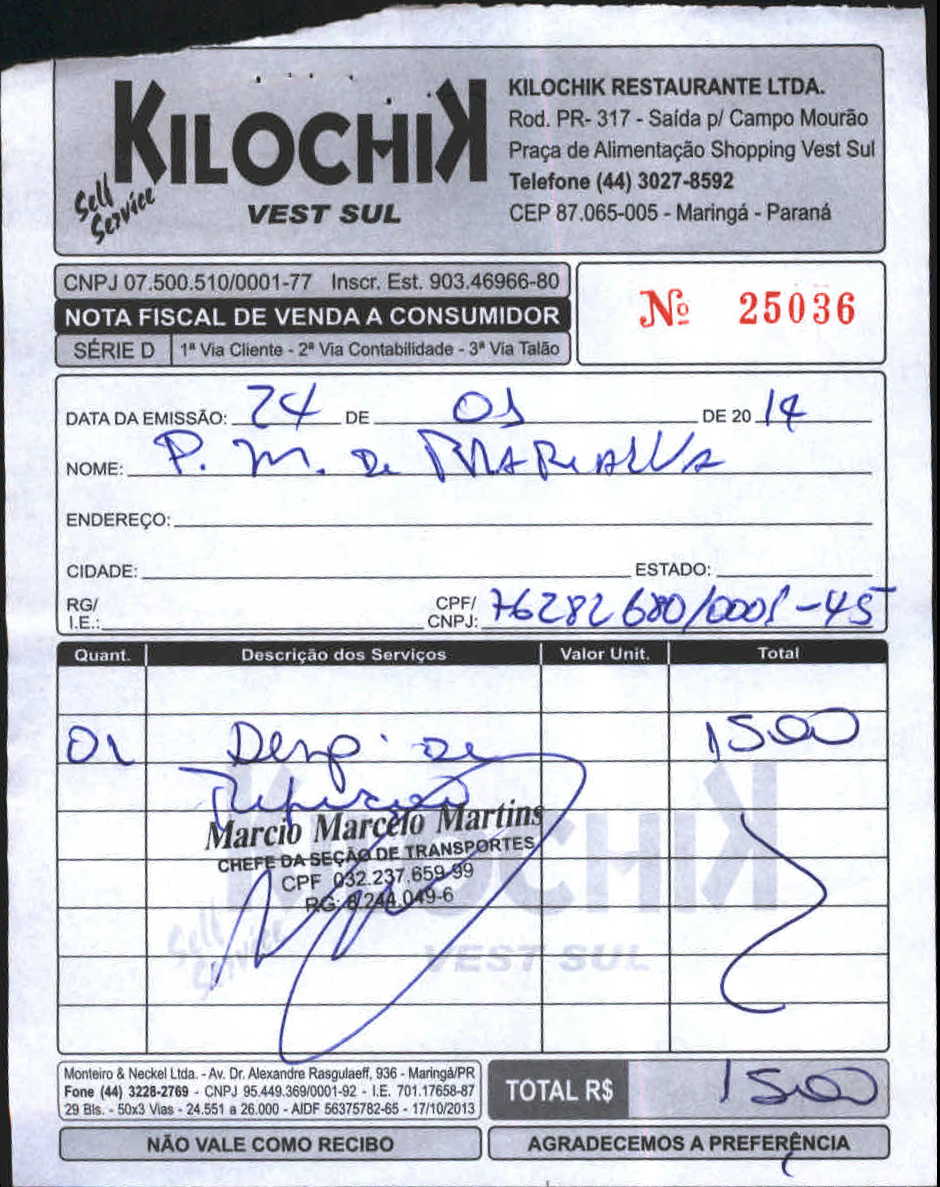 KILOCHIK
Self Service
VEST SUL
KILOCHIK RESTAURANTE LTDA.
Rod. PR- 317 - Saída p/ Campo Mourão
Praça de Alimentação Shopping Vest Sul
Telefone (44) 3027-8592
CEP 87.065-005 - Maringá - Paraná
CNPJ 07.500.510/0001-77 Inscr. Est. 903.46966-80
NOTA FISCAL DE VENDA A CONSUMIDOR
SÉRIE D 1ª Via Cliente - 2ª Via Contabilidade - 3ª Via Talão
Nº 25036
DATA DA EMISSÃO: 24 DE 01 DE 20 14
NOME: P. M. De MARIALVA
ENDEREÇO:
CIDADE: ESTADO:
RG/ I.E.: CPF/ CNPJ: 76282680/0001-45
Quant. Descrição dos Serviços Valor Unit. Total
01 Desp. de 1500
Refeição
Marcio Marcelo Martins
CHEFE DA SEÇÃO DE TRANSPORTES
CPF 032.237.659-99
RG: 8.244.049-6
KILOCHIK
Self Service
VEST SUL
Monteiro & Neckel Ltda. - Av. Dr. Alexandre Rasgulaeff, 936 - Maringá/PR
Fone (44) 3228-2769 - CNPJ 95.449.369/0001-92 - I.E. 701.17658-87
29 Bls. - 50x3 Vias - 24.551 a 26.000 - AIDF 56375782-65 - 17/10/2013
TOTAL R$ 1500
NÃO VALE COMO RECIBO
AGRADECEMOS A PREFERÊNCIA